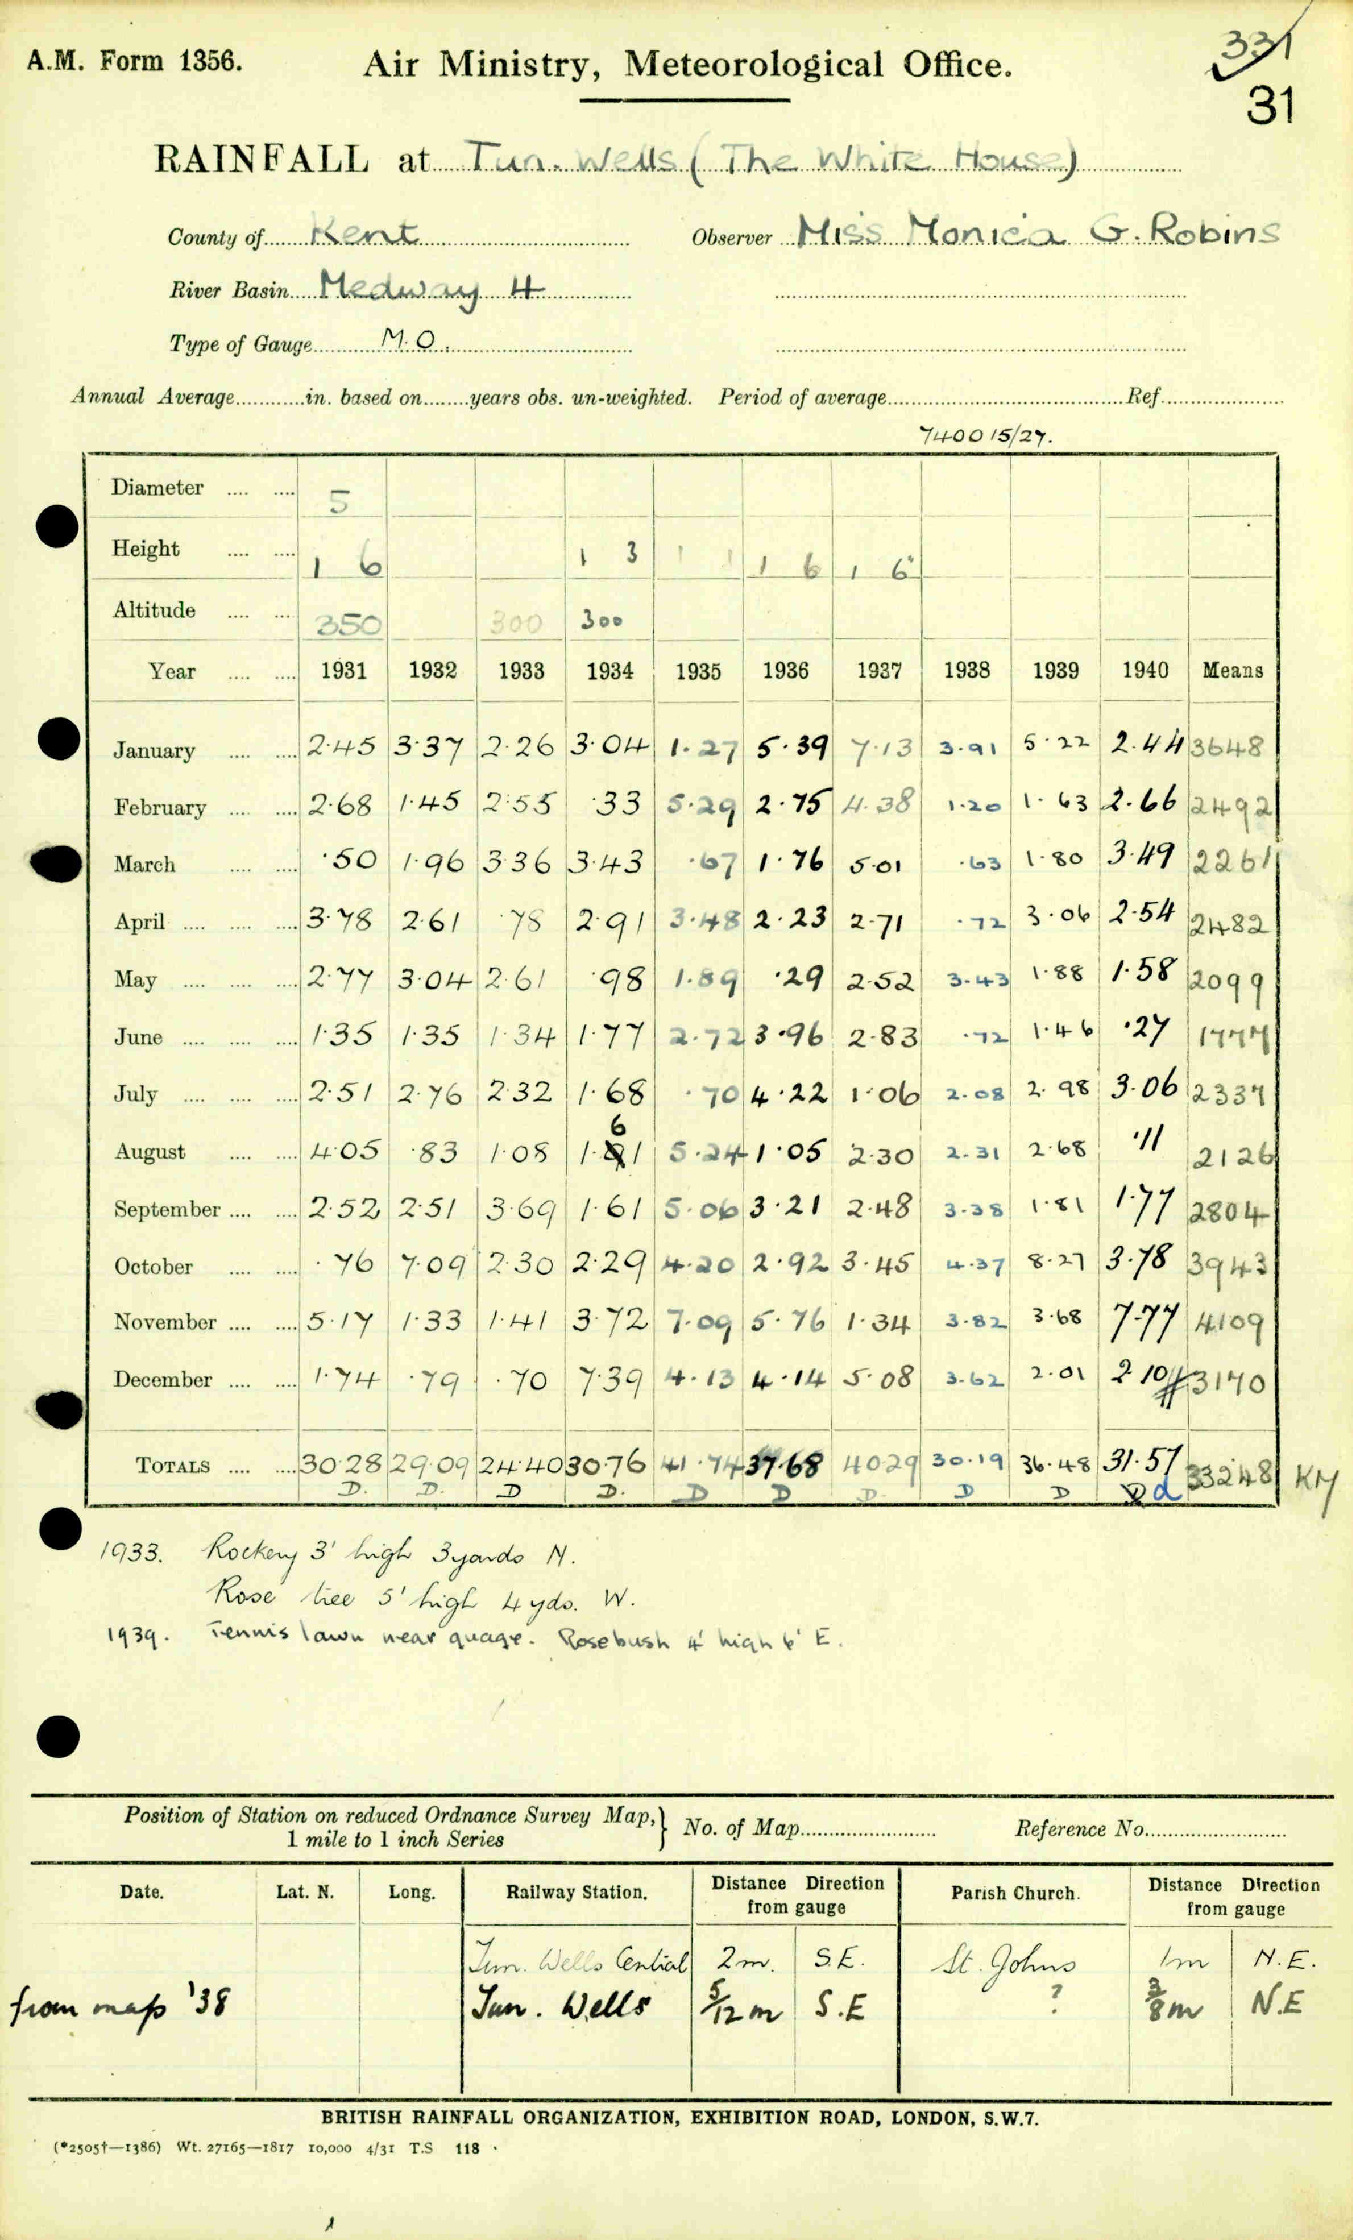 A.M. Form 1356. Air Ministry, Meteorological Office. 331
31
RAINFALL at Tun. Wells (The White House)
County of Kent Observer Miss Monica G. Robins
River Basin Medway 4
Type of Gauge M.O.
Annual Average in. based on years obs. un-weighted. Period of average Ref.
740015/27.
Diameter 5
Height 1 6 1 3 1 1 1 6 1 6
Altitude 350 300 300
Year 1931 1932 1933 1934 1935 1936 1937 1938 1939 1940 Means
January 2·45 3·37 2·26 3·04 1·27 5·39 7·13 3·91 5·22 2·44 3648
February 2·68 1·45 2·55 ·33 5·29 2·75 4·38 1·20 1·63 2·66 2492
March ·50 1·96 3·36 3·43 ·67 1·76 5·01 ·63 1·80 3·49 2261
April 3·78 2·61 ·78 2·91 3·48 2·23 2·71 ·72 3·06 2·54 2482
May 2·77 3·04 2·61 ·98 1·89 ·29 2·52 3·43 1·88 1·58 2099
June 1·35 1·35 1·34 1·77 2·72 3·96 2·83 ·72 1·46 ·27 1777
July 2·51 2·76 2·32 1·68 ·70 4·22 1·06 2·08 2·98 3·06 2337
August 4·05 ·83 1·08 1·61 5·24 1·05 2·30 2·31 2·68 ·11 2126
September 2·52 2·51 3·69 1·61 5·06 3·21 2·48 3·38 1·81 1·77 2804
October ·76 7·09 2·30 2·29 4·20 2·92 3·45 4·37 8·27 3·78 3943
November 5·17 1·33 1·41 3·72 7·09 5·76 1·34 3·82 3·68 7·77 4109
December 1·74 ·79 ·70 7·39 4·13 4·14 5·08 3·62 2·01 2·10 3170
TOTALS 30·28 29·09 24·40 30·76 41·74 37·68 40·29 30·19 36·48 31·57 33248 KM
D. D. D D. D D D. D D D d
1933. Rockery 3' high 3 yards N.
Rose tree 5' high 4 yds. W.
1939. Tennis lawn near guage. Rosebush 4' high 6' E.
Position of Station on reduced Ordnance Survey Map, 1 mile to 1 inch Series } No. of Map Reference No.
Date. Lat. N. Long. Railway Station. Distance Direction from gauge Parish Church. Distance Direction from gauge
Tun. Wells Central 2m. S.E. St. Johns 1m N.E.
from map '38 Tun. Wells 5/12 m S.E ? 3/8 m N.E
BRITISH RAINFALL ORGANIZATION, EXHIBITION ROAD, LONDON, S.W.7.
(*2505†—1386) Wt. 27165—1817 10,000 4/31 T.S 118